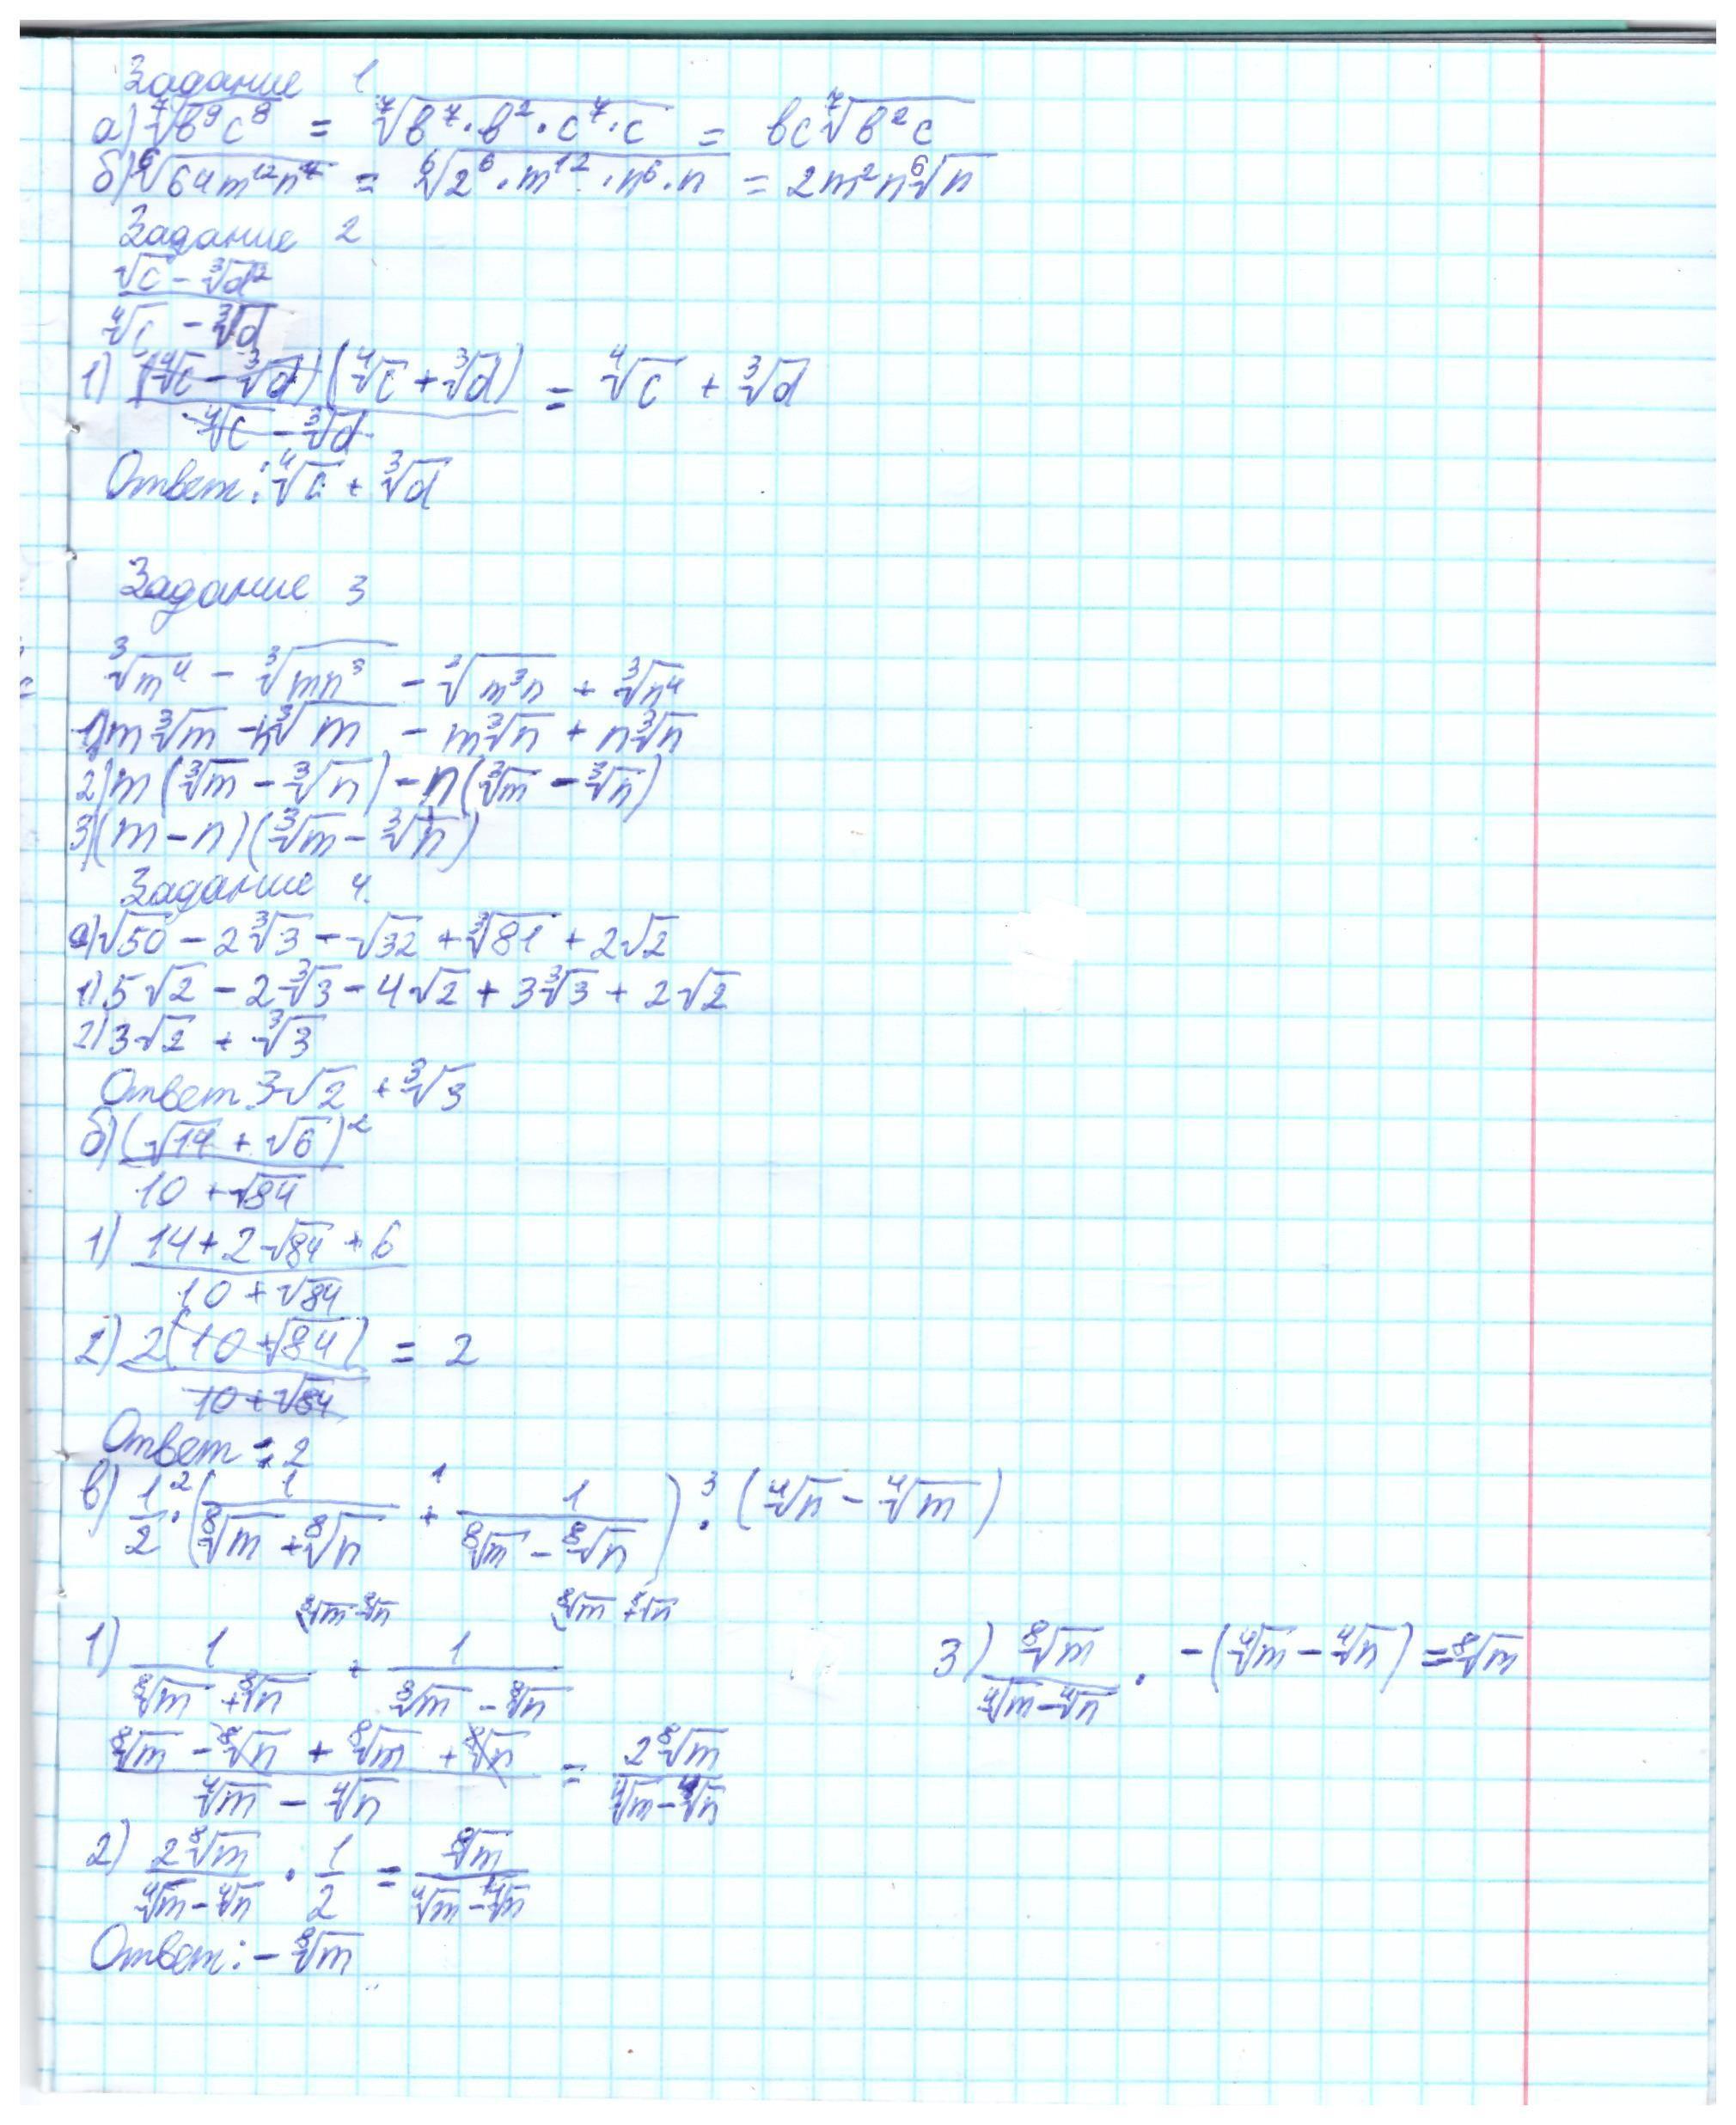 Задание 1
а) ⁷√(b⁹c⁸) = ⁷√(b⁷·b²·c⁷·c) = bc ⁷√(b²c)
б) ⁶√(64m¹²n⁷) = ⁶√(2⁶·m¹²·n⁶·n) = 2m²n ⁶√n
Задание 2
(√c - ³√d²) / (⁴√c - ³√d)
1) (⁴√c - ³√d)(⁴√c + ³√d) / (⁴√c - ³√d) = ⁴√c + ³√d
Ответ: ⁴√c + ³√d
Задание 3
³√m⁴ - ³√(mn³) - ³√(m³n) + ³√n⁴
1) m ³√m - n ³√m - m ³√n + n ³√n
2) m(³√m - ³√n) - n(³√m - ³√n)
3) (m - n)(³√m - ³√n)
Задание 4.
а) √50 - 2 ³√3 - √32 + ³√81 + 2√2
1) 5√2 - 2 ³√3 - 4√2 + 3 ³√3 + 2√2
2) 3√2 + ³√3
Ответ: 3√2 + ³√3
б) (√14 + √6)² / (10 + √84)
1) (14 + 2√84 + 6) / (10 + √84)
2) 2(10 + √84) / (10 + √84) = 2
Ответ: 2
в) 1/2 ·² (1/(⁸√m + ⁸√n) +¹ 1/(⁸√m - ⁸√n)) ·³ (⁴√n - ⁴√m)
⁸√m - ⁸√n ⁸√m + ⁸√n
1) 1/(⁸√m + ⁸√n) + 1/(⁸√m - ⁸√n)
(⁸√m - ⁸√n + ⁸√m + ⁸√n) / (⁴√m - ⁴√n) = 2 ⁸√m / (⁴√m - ⁴√n)
2) 2 ⁸√m / (⁴√m - ⁴√n) · 1/2 = ⁸√m / (⁴√m - ⁴√n)
3) ⁸√m / (⁴√m - ⁴√n) · -(⁴√m - ⁴√n) = -⁸√m
Ответ: - ⁸√m